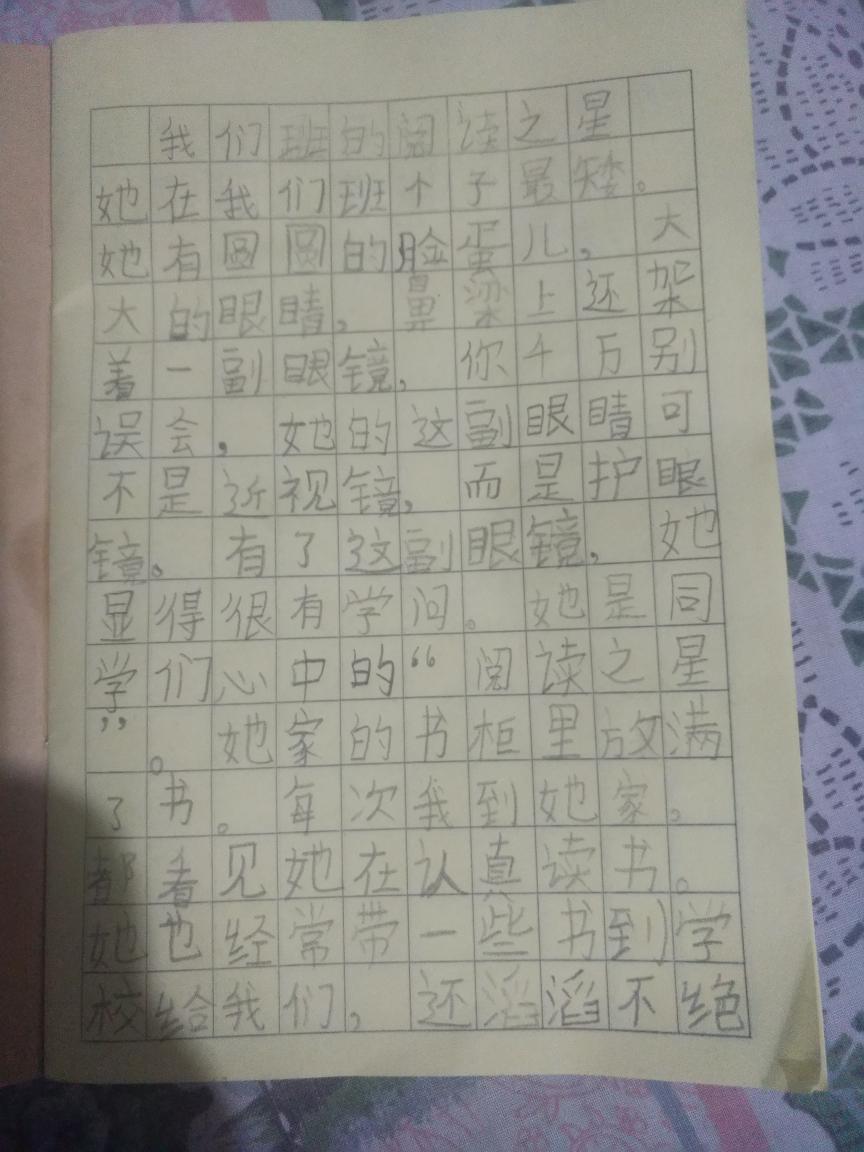 我们班的阅读之星
她在我们班个子最矮。
她有圆圆的脸蛋儿,大
大的眼睛,鼻梁上还架
着一副眼镜,你千万别
误会,她的这副眼睛可
不是近视镜,而是护眼
镜。有了这副眼镜,她
显得很有学问。她是同
学们心中的“阅读之星
”。她家的书柜里放满
了书。每次我到她家。
都看见她在认真读书。
她也经常带一些书到学
校给我们,还滔滔不绝